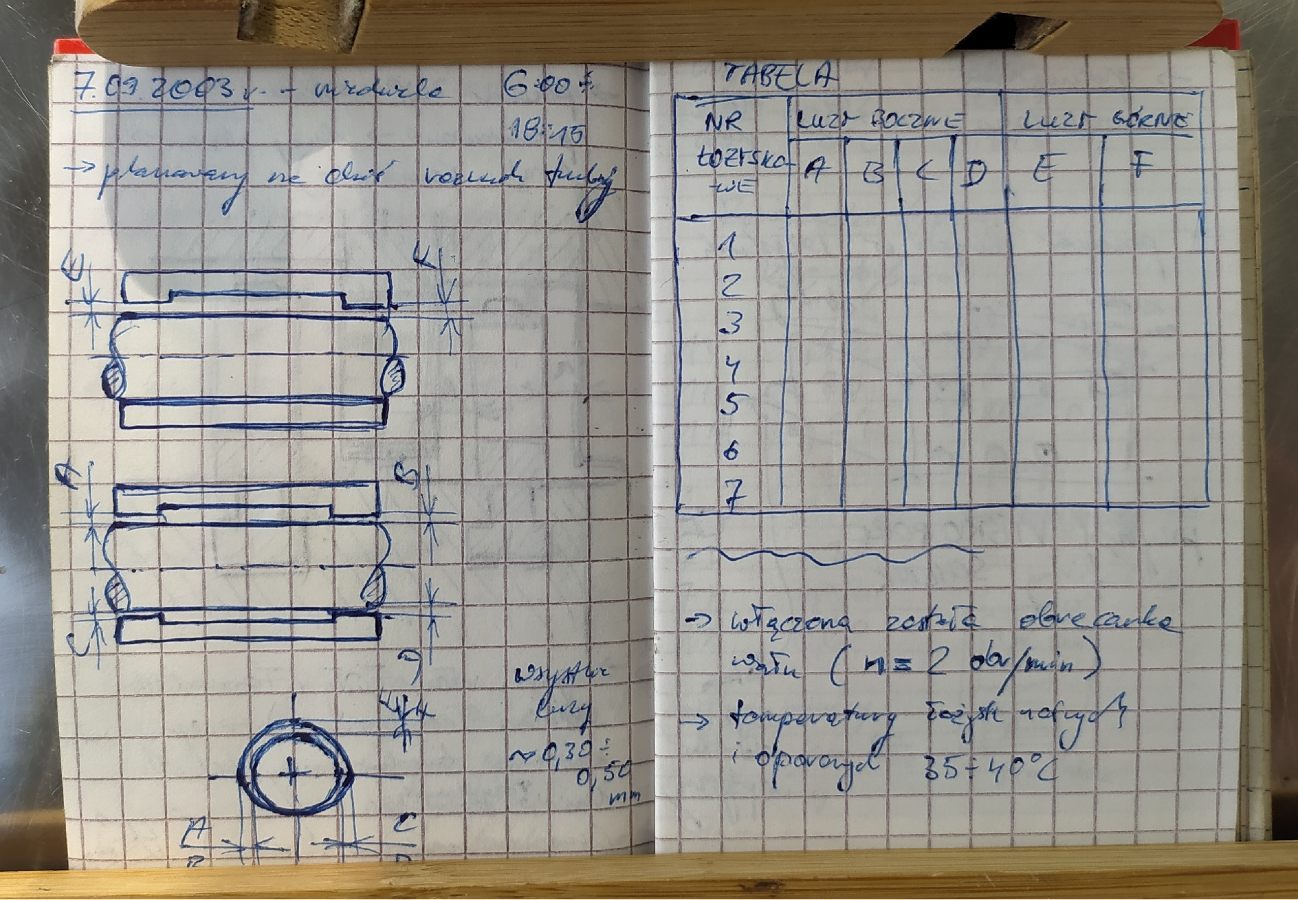 7.09.2003 r. - niedziela 6:00 ÷
18:15
→ planowany na dziś rozruch turbiny
E F
A B
C D
wszystkie
luzy
~ 0,30 ÷
0,50
mm
E F
A C
B D
TABELA
NR LUZY BOCZNE LUZY GÓRNE
ŁOŻYSKO
WE A B C D E F
1
2
3
4
5
6
7
→ włączona została obracarka
wału ( n = 2 obr/min )
→ temperatury łożysk nośnych
i oporowych 35 ÷ 40°C